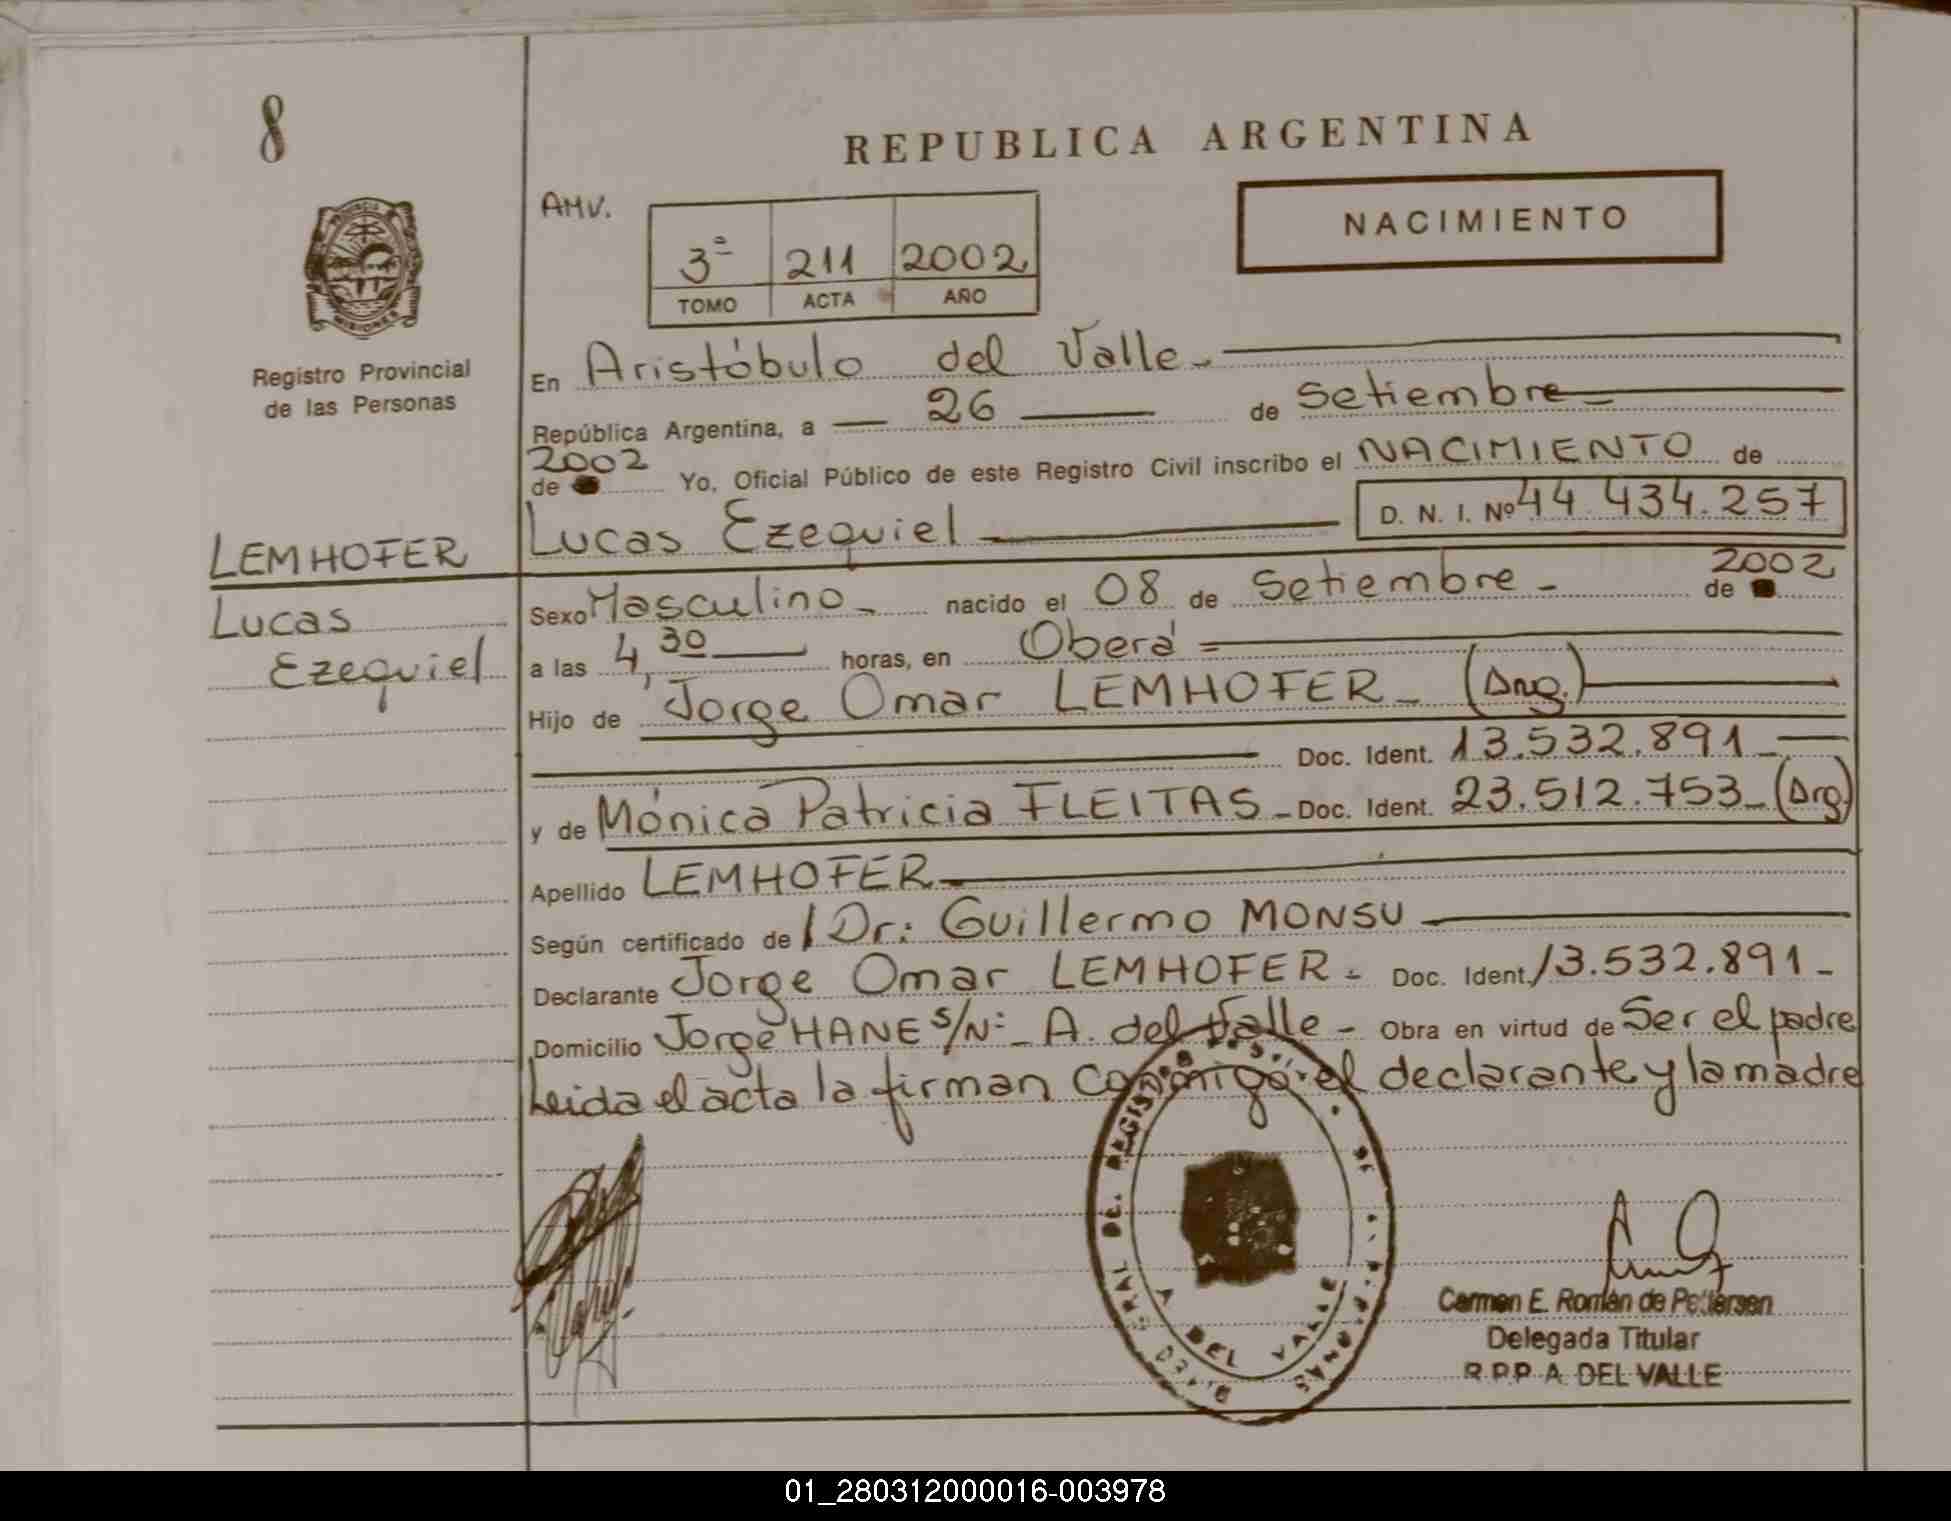 8
REPUBLICA ARGENTINA
AMV.
NACIMIENTO
3ª 211 2002
TOMO ACTA AÑO
PROVINCIA
MISIONES
Registro Provincial
de las Personas
En Aristóbulo del Valle.-
República Argentina, a 26 de Setiembre
2002
de Yo, Oficial Público de este Registro Civil inscribo el NACIMIENTO de
D. N. I. Nº 44.434.257
LEMHOFER Lucas Ezequiel
2002
Lucas Sexo Masculino- nacido el 08 de Setiembre - de
Ezequiel a las 4,30 horas, en Oberá
Hijo de Jorge Omar LEMHOFER- (Arg.)
Doc. Ident. 13.532.891-
y de Mónica Patricia FLEITAS- Doc. Ident. 23.512.753- (Arg)
Apellido LEMHOFER-
Según certificado de / Dr: Guillermo MONSU
Declarante Jorge Omar LEMHOFER- Doc. Ident. 13.532.891-
Domicilio Jorge HANE s/Nº- A. del Valle- Obra en virtud de Ser el padre
Leida el acta la firman conmigo el declarante y la madre
DEL VALLE
Carmen E. Román de Pettersen
Delegada Titular
R.P.P. A. DEL VALLE
01_280312000016-003978